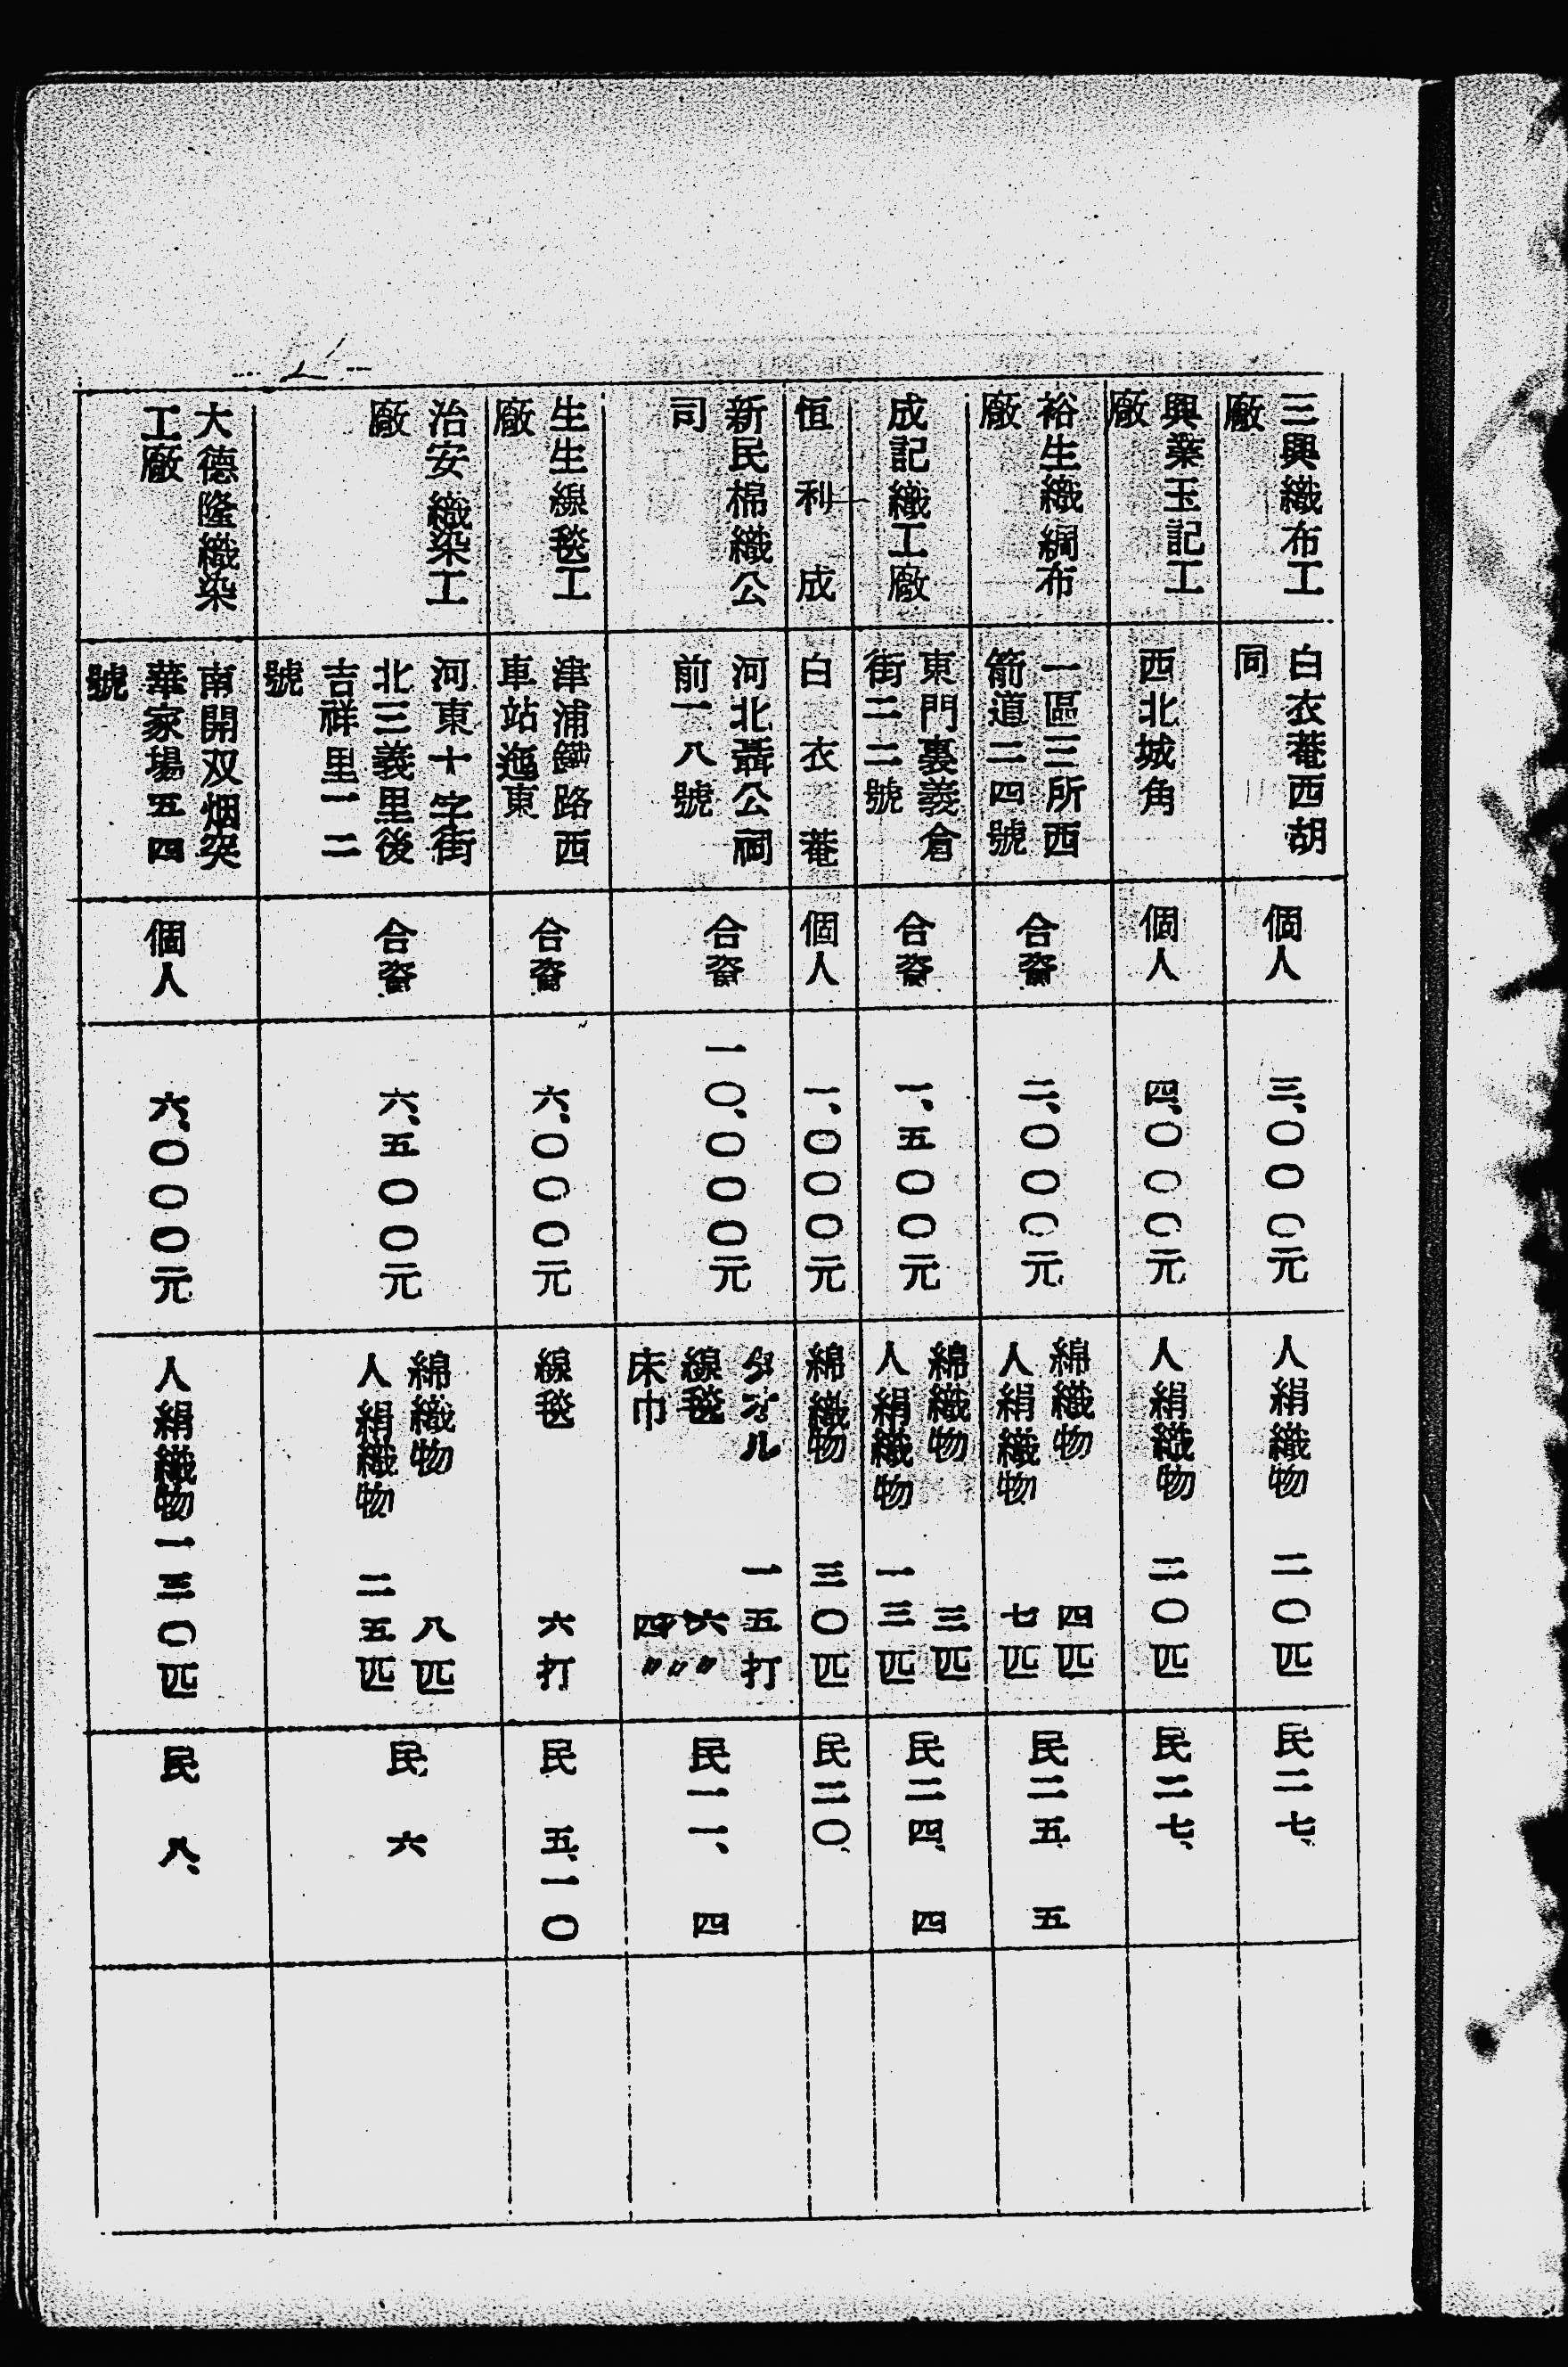 三興織布工
廠
白衣菴西胡
同
個人
三、〇〇〇元
人絹織物 二〇匹
民二七、
興業玉記工
廠
西北城角
個人
四、〇〇〇元
人絹織物 二〇匹
民二七、
裕生織綢布
廠
一區三所西
箭道二四號
合資
二、〇〇〇元
綿織物 四匹
人絹織物 七匹
民二五、五
成記織工廠
東門裏義倉
街二二號
合資
一、五〇〇元
綿織物 三匹
人絹織物 一三匹
民二四、四
恒利成
白衣菴
個人
一、〇〇〇元
綿織物 三〇匹
民二〇、
新民棉織公
司
河北聶公祠
前一八號
合資
一〇、〇〇〇元
タオル 一五打
線毯 六〃
床巾 四〃
民一一、四
生生線毯工
廠
津浦鐵路西
車站迤東
合資
六、〇〇〇元
線毯 六打
民五、一〇
治安織染工
廠
河東十字街
北三義里後
吉祥里一二
號
合資
六、五〇〇元
綿織物 八匹
人絹織物 二五匹
民六
大德隆織染
工廠
南開双烟突
華家場五四
號
個人
六、〇〇〇元
人絹織物一三〇匹
民八、